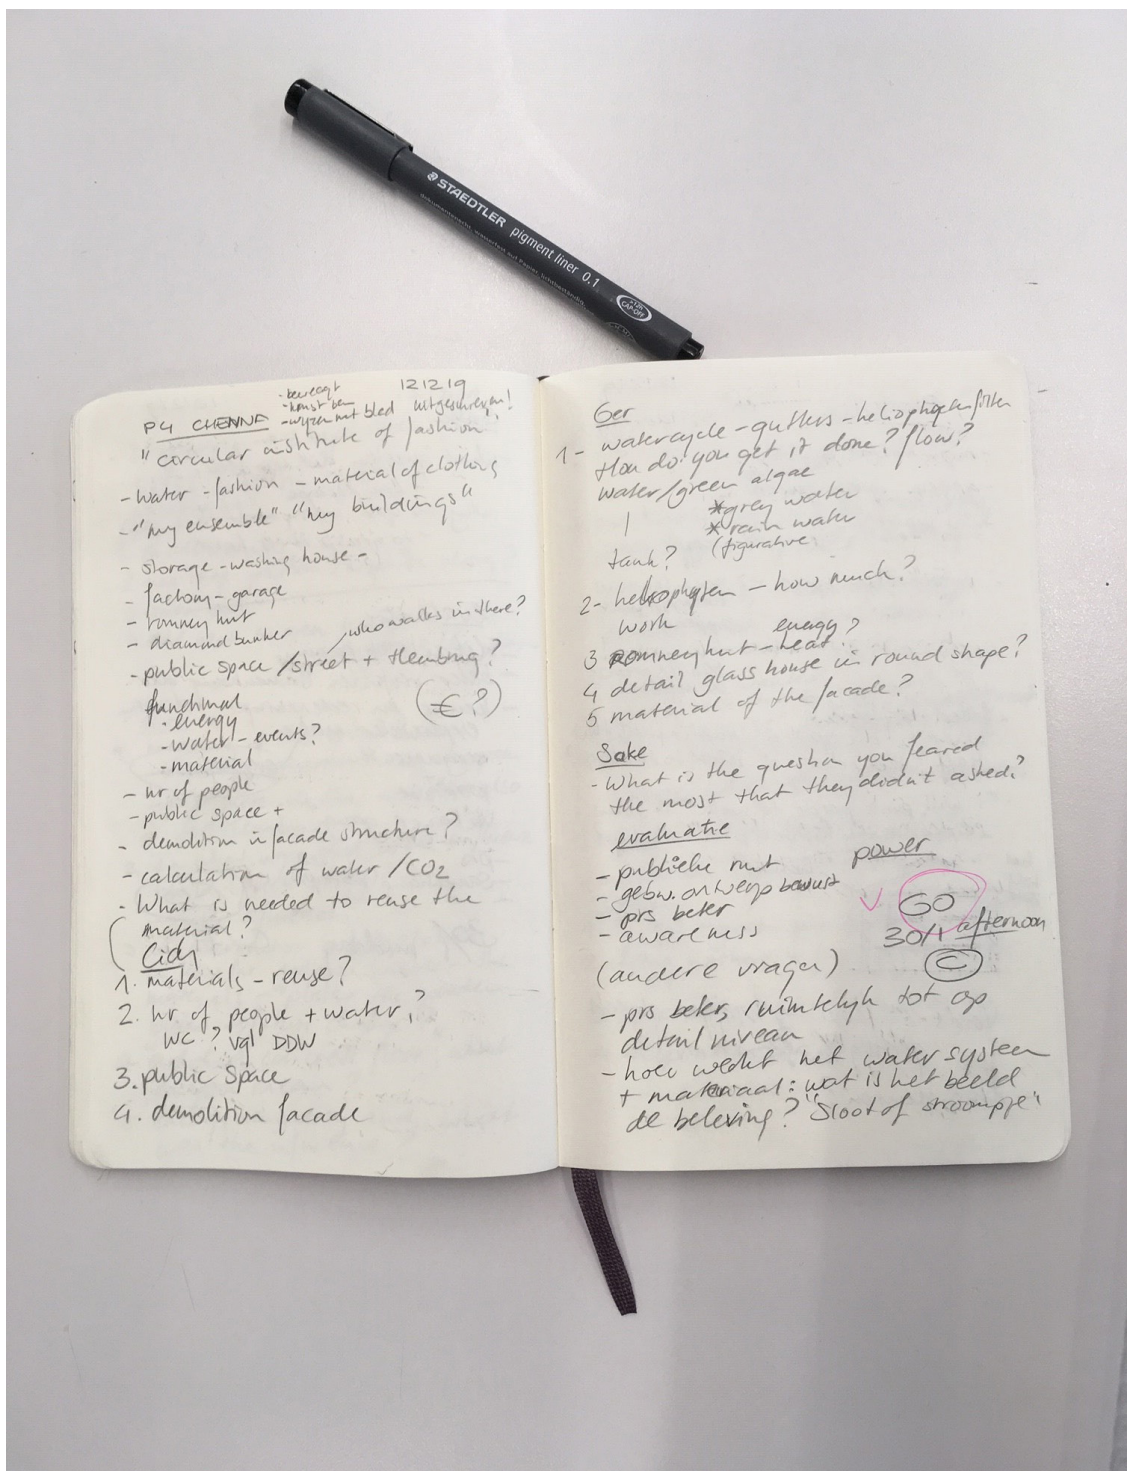 STAEDTLER pigment liner 0.1
CAP-OFF
12 12 19
- beweegt
- wijzen met bled uitgeschreven!
P4 CHENNA
"circular institute of fashion"
- water - fashion - material of clothing
- "my ensemble" "my buildings"
- storage - washing house -
- factory - garage
- romney hut
- diamond bunker
who walks in there?
- public space / street + Hembrug?
(€?)
functional
- energy
- water - events?
- material
- nr of people
- public space +
- demolition in facade structure?
- calculation of water / CO2
- What is needed to reuse the
material?
Cidy
1. materials - reuse?
2. nr of people + water?
WC? vgl DDW
3. public space
4. demolition facade
Ger
1 - watercycle - gutters - heliophyten filter
How do you get it done? flow?
water/green algae
* grey water
* rain water
(figurative
tank?
2 - heliophyten - how much?
work
energy?
3 romney hut - heat
4 detail glass house in round shape?
5 material of the facade?
Sake
- What is the question you feared
the most that they didn't asked?
evaluatie
- publieke
- gebw. ontwerp bewust
- prs beter
- awareness
power
V GO
30/1 afternoon
C
(andere vragen)
- prs beter, ruimtelijk tot op
detail niveau
- hoe werkt het water systeem
+ materiaal: wat is het beeld
de beleving? "Sloot of stroompje"